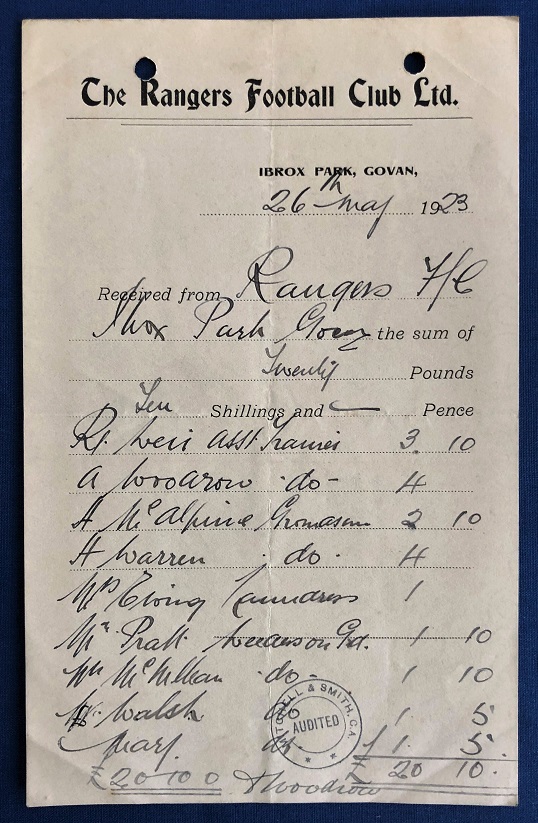 The Rangers Football Club Ltd.
IBROX PARK, GOVAN,
26th May 1923
Received from Rangers F/C
Ibrox Park Govan the sum of
Twenty Pounds
Ten Shillings and — Pence
Rt. Weir Asst Trainer 3. 10
A Woodrow - do - 4
A McAlpine Groundsman 2 10
A Warren - do - 4
Mrs Ewing Laundress 1
Mrs Pratt on Gd. 1 10
Wm McMillan - do - 1 10
Walsh do 1. 5
Mary do £ 1. 5.
£ 20 10 0 £ 20 10.
A Woodrow
MITCHELL & SMITH, C.A.
AUDITED